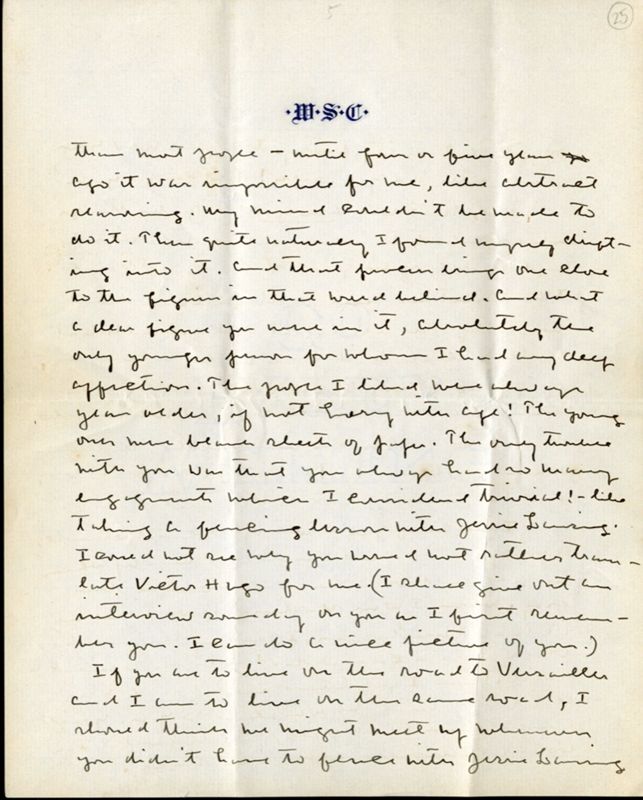 5
25
·W·S·C·
than most people – until four or five years
ago it was impossible for me, like abstract
reasoning. My mind couldn't be made to
do it. Then quite naturally I found myself drift-
ing into it. And that process brings one close
to the figures in that world behind. And what
a dear figure you were in it, absolutely the
only younger person for whom I had any deep
affection. The people I liked were always
years older, if not heavy with age! The young
ones were blank sheets of paper. The only trouble
with you was that you always had so many
engagements which I considered trivial! – like
taking a fencing lesson with Jessie Lansing.
I could not see why you would not rather trans-
late Victor Hugo for me. (I shall give out an
interview some day on you as I first remem-
ber you. I can do a nice picture of you.)
If you are to live on the road to Versailles
and I am to live on the same road, I
should think we might meet up whenever
you didn't have to fence with Jessie Lansing